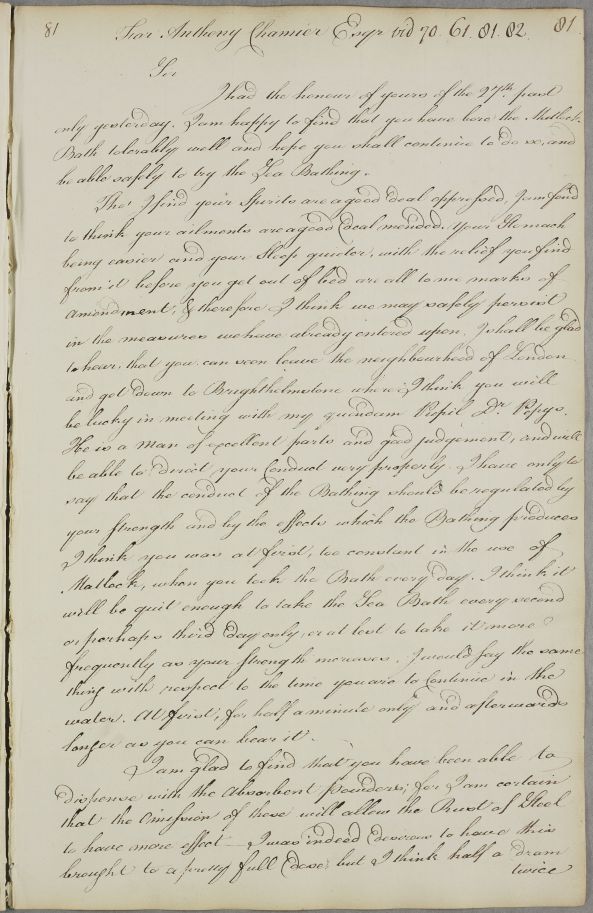 81 For Anthony Chamier Esqr vid 70. 61. 81. 82. 81
Sir
I had the honour of yours of the 27th past
only yesterday. I am happy to find that you have bore the Matlock
Bath tolerably well and hope you shall continue to do so, and
be able safely to try the Sea Bathing.
Tho' I find your Spirits are a good deal oppressed, I am fond
to think your ailments are a good deal mended. Your Stomach
being easier and your Sleep quieter, with the relief you find
from it before you get out of bed are all to me marks of
amendment, & therefore I think we may safely persist
in the measures we have already entered upon. I shall be glad
to hear, that you can soon leave the neighbourhood of London
and get down to Brighthelmstone where I think you will
be lucky in meeting with my quondam Pupil Dr. Pepys.
He is a Man of excellent parts and good judgement, and will
be able to direct your Conduct very properly. I have only to
say that the conduct of the Bathing should be regulated by
your strength and by the effects which the Bathing produces
I think you was at first, too constant in the use of
Matlock, when you took the Bath every day. I think it
will be quit enough to take the Sea Bath every second
or perhaps third day only, or at lest to take it more
frequently as your strength increases. I would say the same
thing with respect to the time you are to Continue in the
water. At first, for half a minute only and afterwards
longer as you can bear it. -
I am glad to find that you have been able to
dispense with the Absorbent powders; for I am certain
that the Omission of these will allow the Rust of Steel
to have more effect - I was indeed desirous to have this
brought to a pretty full dose; but I think half a dram
twice